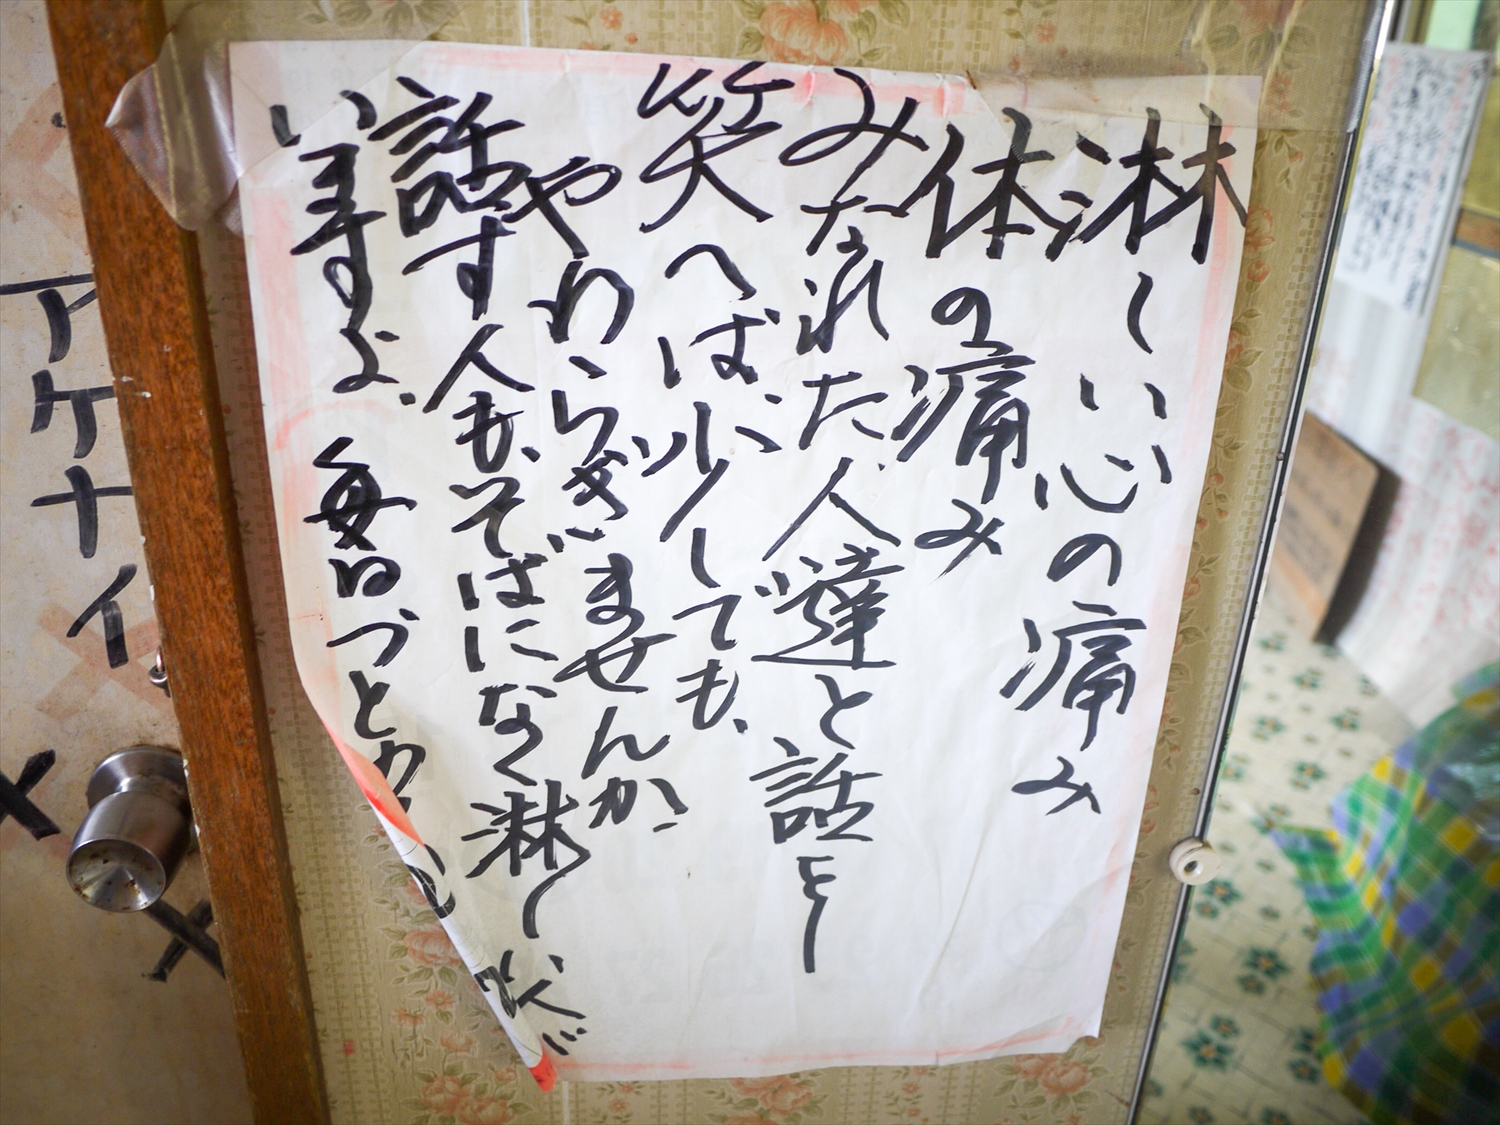 淋しい心の痛み
体の痛み
みだれた人達と話をし
笑へば、少しでも、
やわらぎませんか
話す人もそばになく淋し
いますよ、毎日づと
アケナイ